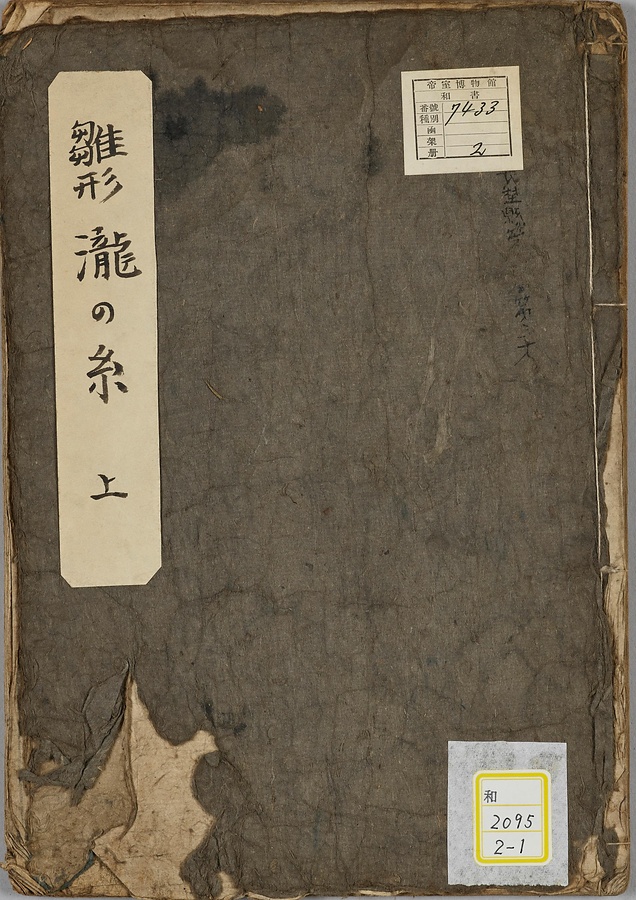 雛形 瀧の糸 上
帝室博物館
和書
番號 7433
種別
函
架
册 2
和
2095
2-1